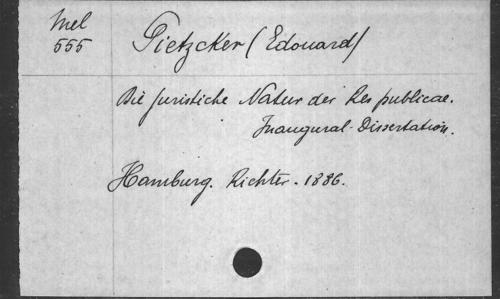 Mel
555
Pietzcker (Edouard)
Die juristiche Natur der Res publicae.
Inaugural-Dissertation.
Hamburg. Richter. 1886.